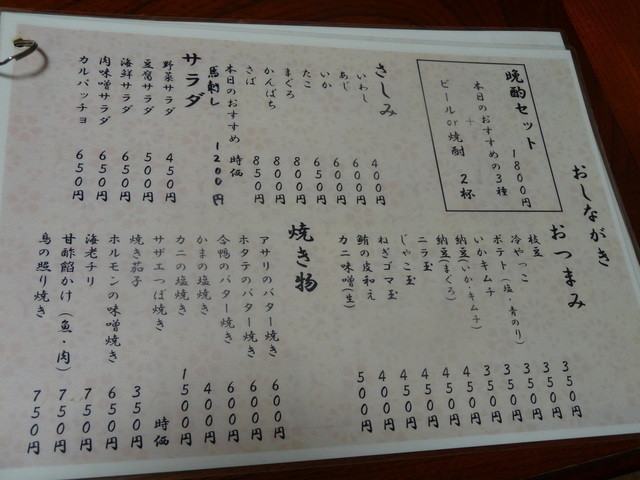 おしながき
晩酌セット 1800円
本日のおすすめの3種
+
ビールor焼酎 2杯
さしみ
いわし 400円
あじ 600円
いか 600円
たこ 650円
まぐろ 800円
かんぱち 850円
さば 850円
本日のおすすめ 時価
馬刺し 1200円
サラダ
野菜サラダ 450円
豆腐サラダ 500円
海鮮サラダ 650円
肉味噌サラダ 650円
カルパッチョ 650円
おつまみ
枝豆 350円
冷やっこ 350円
ポテト(塩・青のり) 350円
いかキムチ 350円
納豆(いか・キムチ) 350円
納豆(まぐろ) 450円
ニラ玉 450円
じゃこ玉 450円
ねぎゴマ玉 450円
鮪の皮和え 400円
カニ味噌(生) 500円
焼き物
アサリのバター焼き 600円
ホタテのバター焼き 600円
合鴨のバター焼き 600円
かまの塩焼き 400円
カニの塩焼き 1500円
サザエつぼ焼き 時価
焼き茄子 350円
ホルモンの味噌焼き 650円
海老チリ 750円
甘酢餡かけ(魚・肉) 750円
鳥の照り焼き 750円